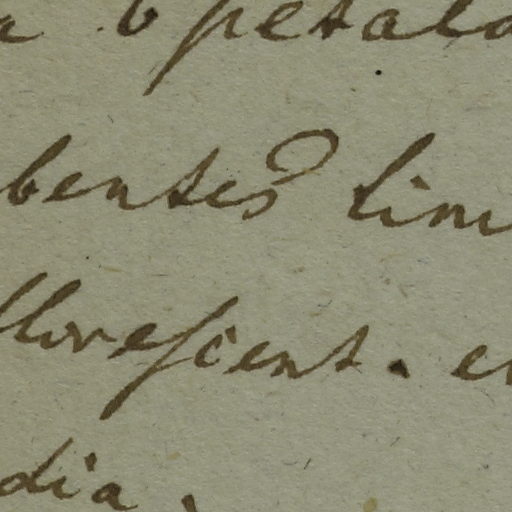 a 6petala
bentes lim
florescent. e
dia.